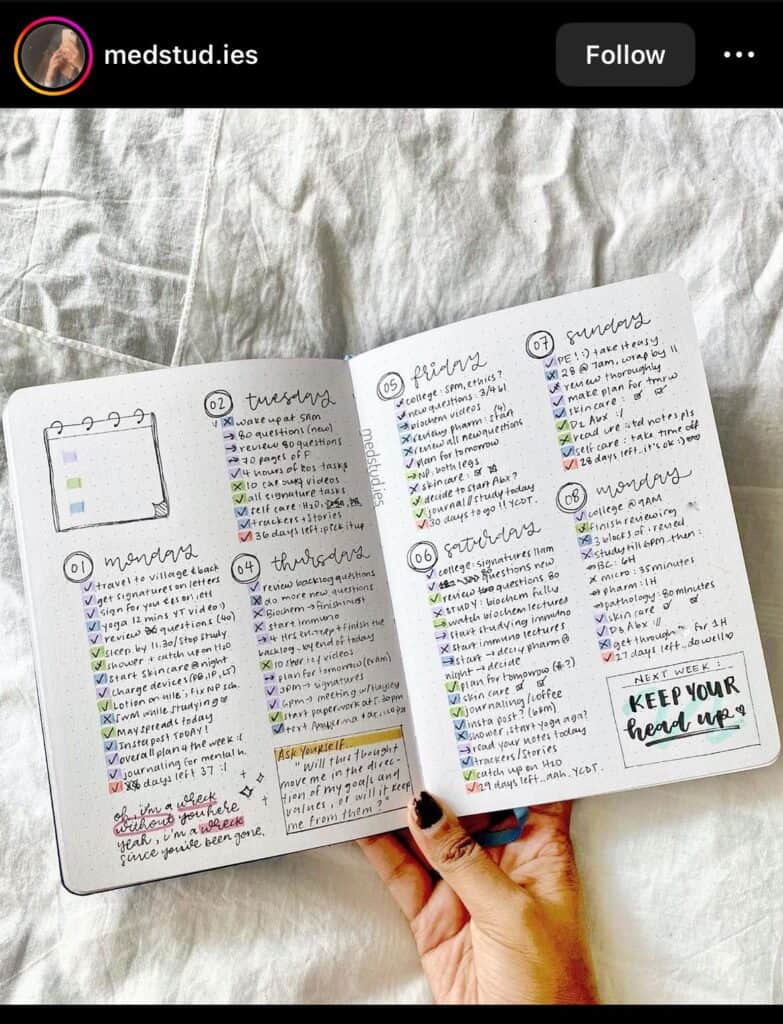 medstud.ies
Follow
02 tuesday
wake up at 5AM
80 questions (new)
review 80 questions
70 pages of F.
4 hours of tasks
10 videos
all signature tasks
self care: H2O,
trackers + stories
36 days left, pick it up
01 monday
travel to village & back
get signatures on letters
sign for you
yoga 12 mins YT video :)
review questions (40)
sleep by 11:30/stop study
shower + catch up on H2O
start skincare @ night
charge devices
Lotion
SWM while studying
May spreads today
Insta post TODAY!
overall plan 4 the week :/
journaling for mental h.
days left 37 :/
oh, i'm a wreck
without you here
yeah, i'm a wreck
since you've been gone.
04 thursday
review backlog questions
do more new questions
Biochem → finishing
start immuno
4 hrs + finish the
backlog by end of today
10 videos
plan for tomorrow (exam)
3PM → signatures
6PM → meeting w/
start paperwork at
text
Ask Yourself...
"Will this thought
move me in the direc-
tion of my goals and
values, or will it keep
me from them?"
medstud.ies
05 friday
college: 5PM, ethics?
new questions: 3/461
biochem videos (4)
review pharm: start
review all new questions
plan for tomorrow
NP: both legs
skincare:
decide to start Abx?
journal//study today
30 days to go !! YCDT.
06 saturday
college: signatures 11am
questions new
review questions 80
STUDY: biochem fully
watch biochem lectures
start studying immuno
start immuno lectures
start → decide pharm @
night → decide
plan for tomorrow
skin care
journaling/coffee
insta post? (6pm)
shower, start yoga again?
read your notes today
trackers/stories
catch up on H2O
29 days left...aah. YCDT.
07 sunday
PE! :) take it easy
28 @ 7am, wrap by 11
review thoroughly
make plan for tmrw
skin care:
D2 Abx :/
read notes pls
self care: take time off
28 days left...it's ok :)
08 monday
college @ 9AM
finish reviewing
3 blocks of
study till 6PM, then:
BC: 6H
micro: 35 minutes
pharm: 1H
pathology: 80 minutes
skin care
D3 Abx :/
get through for 1H
27 days left...do well
NEXT WEEK:
KEEP YOUR
head up